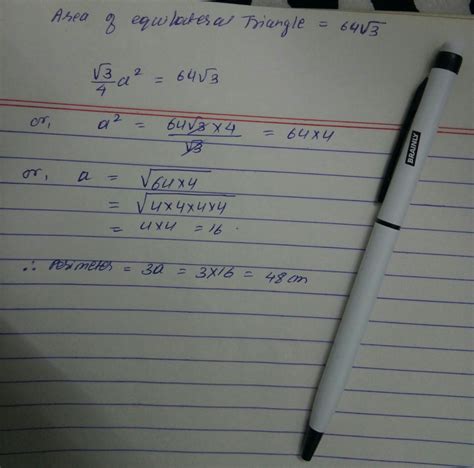 Area of equilateral Triangle = 64√3
√3/4 a² = 64√3
or, a² = 64√3×4/√3 = 64×4
or, a = √64×4
= √4×4×4×4
= 4×4 = 16.
∴ Perimeter = 3a = 3×16 = 48cm
BRAINLY